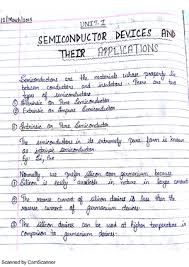 12/March/2018
UNIT-I
SEMICONDUCTOR DEVICES AND
THEIR APPLICATIONS
Semiconductors are the materials whose property is
between conductors and insulators. There are two
types of semiconductors
① Intrinsic or Pure Semiconductor
② Extrinsic or Impure Semiconductor
① Intrinsic or Pure Semiconductor
Semiconductors in its extremely pure form is known
as intrinsic semiconductor.
Eg: Si, Ge
Normally we prefer silicon over germanium because
① Silicon is easily available in nature in large amount
② The reverse current of silicon devices is less than the
reverse current of germanium devices.
③ The silicon devices can be used at higher temperature in
comparison to germanium devices.
Scanned by CamScanner